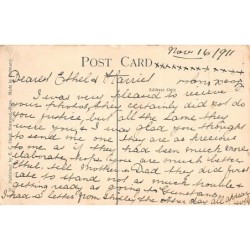 Nov 16/1911
POST CARD
Address Only
Dearest Ethel & Harriet
I was very pleased to receive
your photos, they certainly did not do
you justice, but all the same they
were yours & I was glad you thought
to send me one they are as precious
to me as if they had been much more
elaborate, hope you are much better
Ethel, tell Mother & Dad they did first
rate to stand not as much trouble
getting ready as going to
I had a letter from the other day all about